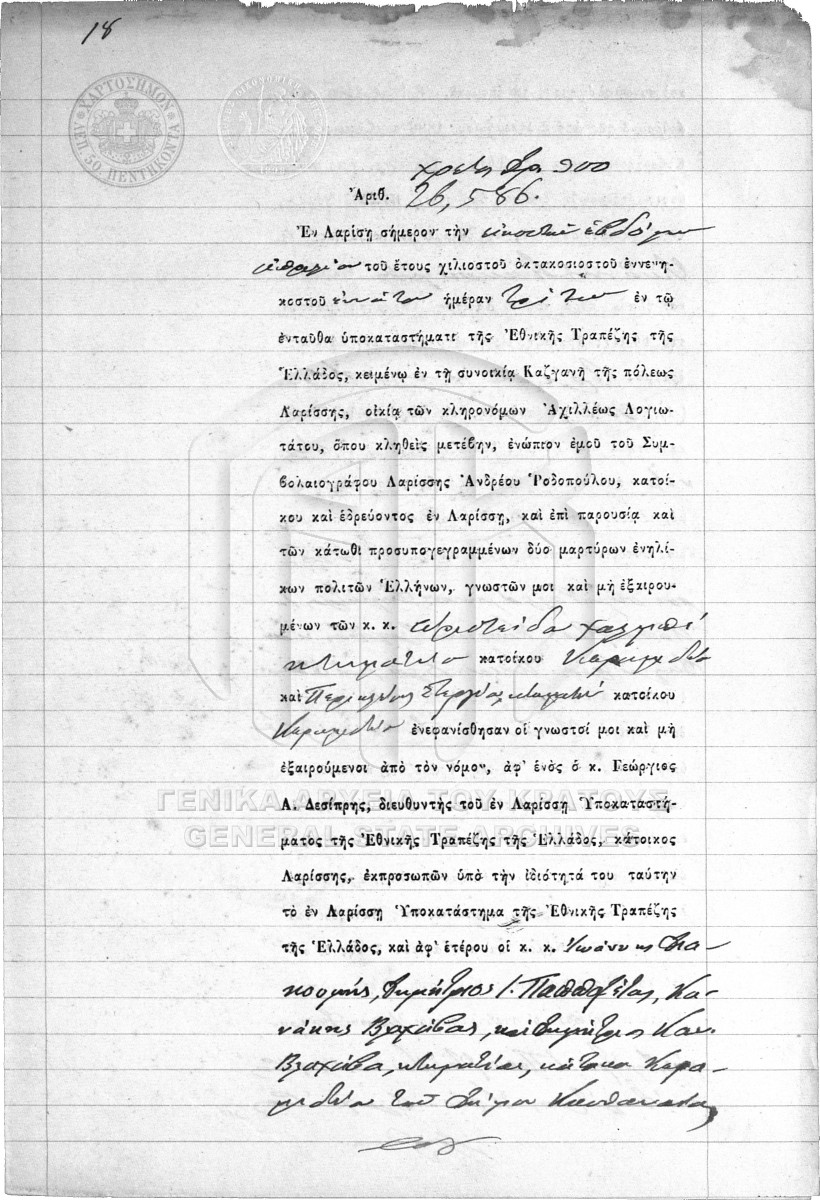 18
ΧΑΡΤΟΣΗΜΟΝ ΛΕΠ. 50 ΠΕΝΤΗΚΟΝΤΑ
Δρ 900
Ἀριθ. 26,586.
Ἐν Λαρίσῃ σήμερον τὴν εἰκοστὴν ἑβδόμην
Ἀπριλίου τοῦ ἔτους χιλιοστοῦ ὀκτακοσιοστοῦ ἐννενη-
κοστοῦ ἐνάτου ἡμέραν Τρίτην ἐν τῷ
ἐνταῦθα ὑποκαταστήματι τῆς Ἐθνικῆς Τραπέζης τῆς
Ἑλλάδος, κειμένῳ ἐν τῇ συνοικίᾳ Καζγανῆ τῆς πόλεως
Λαρίσσης, οἰκίᾳ τῶν κληρονόμων Ἀχιλλέως Λογιω-
τάτου, ὅπου κληθεὶς μετέβην, ἐνώπιον ἐμοῦ τοῦ Συμ-
βολαιογράφου Λαρίσσης Ἀνδρέου Ῥοδοπούλου, κατοί-
κου καὶ ἑδρεύοντος ἐν Λαρίσσῃ, καὶ ἐπὶ παρουσίᾳ καὶ
τῶν κάτωθι προσυπογεγραμμένων δύο μαρτύρων ἐνηλί-
κων πολιτῶν Ἑλλήνων, γνωστῶν μοι καὶ μὴ ἐξαιρου-
μένων τῶν κ. κ. Ἀριστείδου
κτηματίου κατοίκου
καὶ Περικλέους Στεργίου κατοίκου
ἐνεφανίσθησαν οἱ γνωστοί μοι καὶ μὴ
ἐξαιρούμενοι ἀπὸ τὸν νόμον, ἀφ' ἑνὸς ὁ κ. Γεώργιος
Α. Δεσίπρης, διευθυντὴς τοῦ ἐν Λαρίσσῃ Ὑποκαταστή-
ΓΕΝΙΚΑ ΑΡΧΕΙΑ ΤΟΥ ΚΡΑΤΟΥΣ
GENERAL STATE ARCHIVES
ματος τῆς Ἐθνικῆς Τραπέζης τῆς Ἑλλάδος, κάτοικος
Λαρίσσης, ἐκπροσωπῶν ὑπὸ τὴν ἰδιότητά του ταύτην
τὸ ἐν Λαρίσσῃ Ὑποκατάστημα τῆς Ἐθνικῆς Τραπέζης
τῆς Ἑλλάδος, καὶ ἀφ' ἑτέρου οἱ κ. κ. Ἰωάννης
Δημήτριος Ι. Κα-
νάκης Βλαχάβας, καὶ Δημήτριος Καν.
Βλαχάβα, κτηματίαι, κάτοικοι
τοῦ δήμου